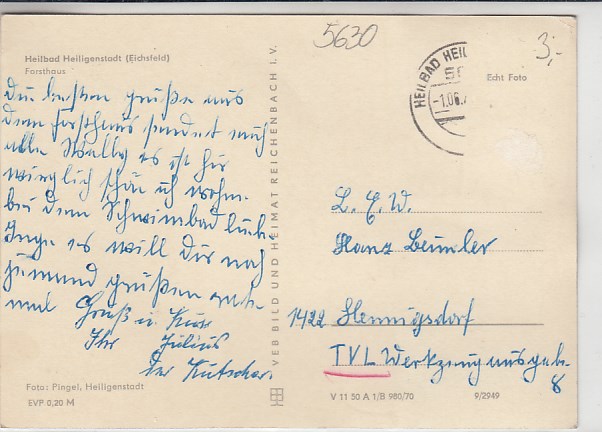 5630
3,-
Heilbad Heiligenstadt (Eichsfeld)
Forsthaus
HEILBAD HEIL
-1.06.
Echt Foto
Die besten grüße aus
dem Forsthaus sendet euch
alle Wally es ist hir
wirglich schön ich wohn
bei dem Schwimbad liebe
Inge es will Dir noch
jemand grüßen
mal Gruß u. Kuss
Ihr Julius
der Kutscher.
VEB BILD UND HEIMAT REICHENBACH I. V.
L. E. W.
Hanz Beimler
1422 Hennigsdorf
TVL Werkzeugausgabe
8
Foto: Pingel, Heiligenstadt
EVP 0,20 M
V 11 50 A 1/B 980/70
9/2949